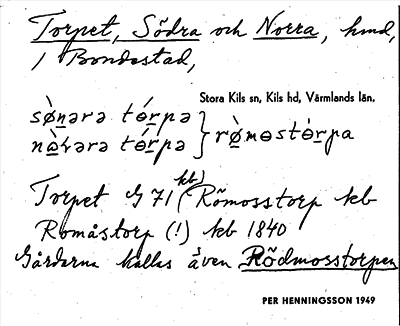 Torpet, Södra och Norra, hmd,
/ Bondestad,
Stora Kils sn, Kils hd, Värmlands län.
sø̀n̠ərə tɵ́r̠pə
nɷ̀rərə tɵ́r̠pə } rø̀mɵstɵ́r̠pa
Torpet G 71 (kb) Römosstorp kb
Romåstorp (!) kb 1840
Gårdarna kallas även Rödmosstorpen
PER HENNINGSSON 1949